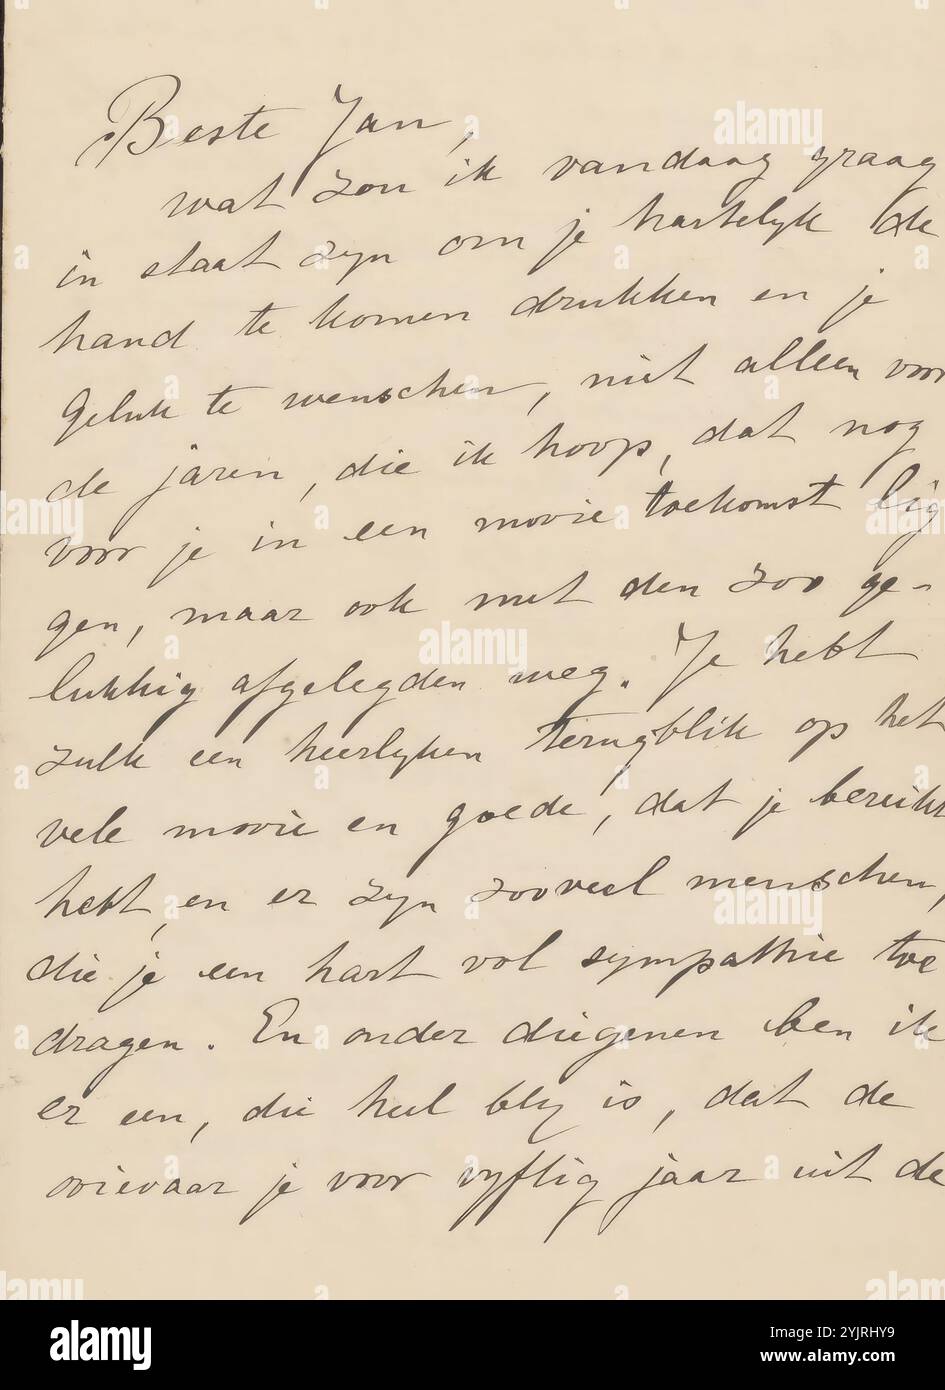 Beste Jan,
wat zou ik vandaag graag
in staat zyn om je hartelyk de
hand te komen drukken en je
geluk te wenschen, niet alleen voor
de jaren, die ik hoop, dat nog
voor je in een mooie toekomst lig
gen, maar ook met den zoo ge-
lukkig afgelegden weg. Je hebt
zulk een heerlyken terugblik op het
vele mooie en goede, dat je bereikt
hebt, en er zyn zooveel menschen,
die je een hart vol sympathie toe
dragen. En onder diegenen ben ik
er een, die heel bly is, dat de
ooievaar je voor vyftig jaar uit de
alamy
Image ID: 2YJRHY9
www.alamy.com